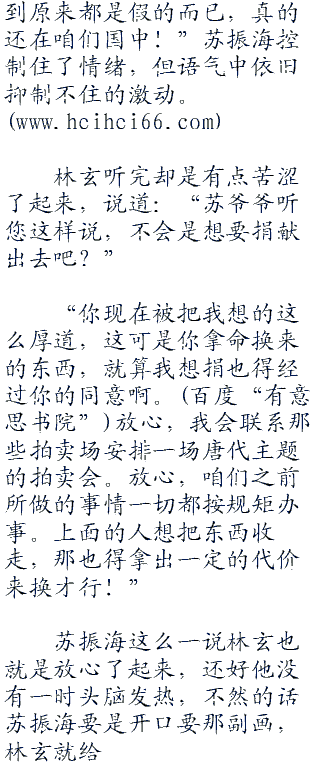 到原来都是假的而已，真的
还在咱们国中！”苏振海控
制住了情绪，但语气中依旧
抑制不住的激动。
(www.hcihci66.com)
林玄听完却是有点苦涩
了起来，说道：“苏爷爷听
您这样说，不会是想要捐献
出去吧？”
“你现在被把我想的这
么厚道，这可是你拿命换来
的东西，就算我想捐也得经
过你的同意啊。(百度“有意
思书院”)放心，我会联系那
些拍卖场安排一场唐代主题
的拍卖会。放心，咱们之前
所做的事情一切都按规矩办
事。上面的人想把东西收
走，那也得拿出一定的代价
来换才行！”
苏振海这么一说林玄也
就是放心了起来，还好他没
有一时头脑发热，不然的话
苏振海要是开口要那副画，
林玄就给